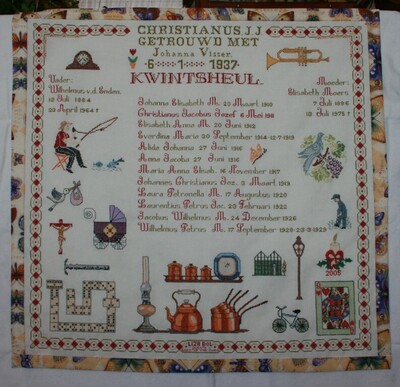 CHRISTIANUS J.J.
GETROUWD MET
Johanna Visser.
6-1-1937
KWINTSHEUL.
Vader:
Wilhelmus v.d. Enden.
Moeder:
Elisabeth Moers
Johanna Elisabeth M. 23 Maart 1910
Christianus Jacobus Jozef 6 Mei 1911
Elisabeth Anna M. 20 Juni 1912
Everdina Maria 30 September 1914-12-7-1919
Alida Johanna 27 Juni 1916
Anna Jacoba 27 Juni 1916
Maria Anna Elisab. 16 November 1917
Johannes Christianus Joz. 2 Maart 1919
Laura Petronella M. 17 Augustus 1920
Laurentius Petrus Joz. 23 Februari 1922
Jacobus Wilhelmus M. 24 December 1926
Wilhelmus Petrus M. 17 September 1928-29-9-1929
2005